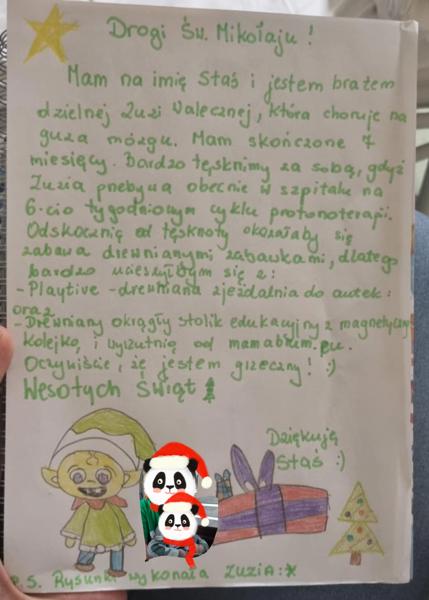 Drogi Św. Mikołaju!
Mam na imię Staś i jestem bratem
dzielnej Zuzi Walecznej, która choruje na
guza mózgu. Mam skończone 7
miesięcy. Bardzo tęsknimy za sobą, gdyż
Zuzia przebywa obecnie w szpitalu na
6-cio tygodniowym cyklu protonoterapii.
Odskocznią od tęsknoty okazałaby się
zabawa drewnianymi zabawkami, dlatego
bardzo ucieszyłbym się z:
- Playtive - drewniana zjeżdalnia do autek:
oraz
- Drewniany okrągły stolik edukacyjny z magnetyczną
kolejką, i wyrzutnią od mamabrum.pu.
Oczywiście, że jestem grzeczny! :)
Wesołych Świąt
Dziękuję
Staś :)
P.S. Rysunki wykonała Zuzia :*